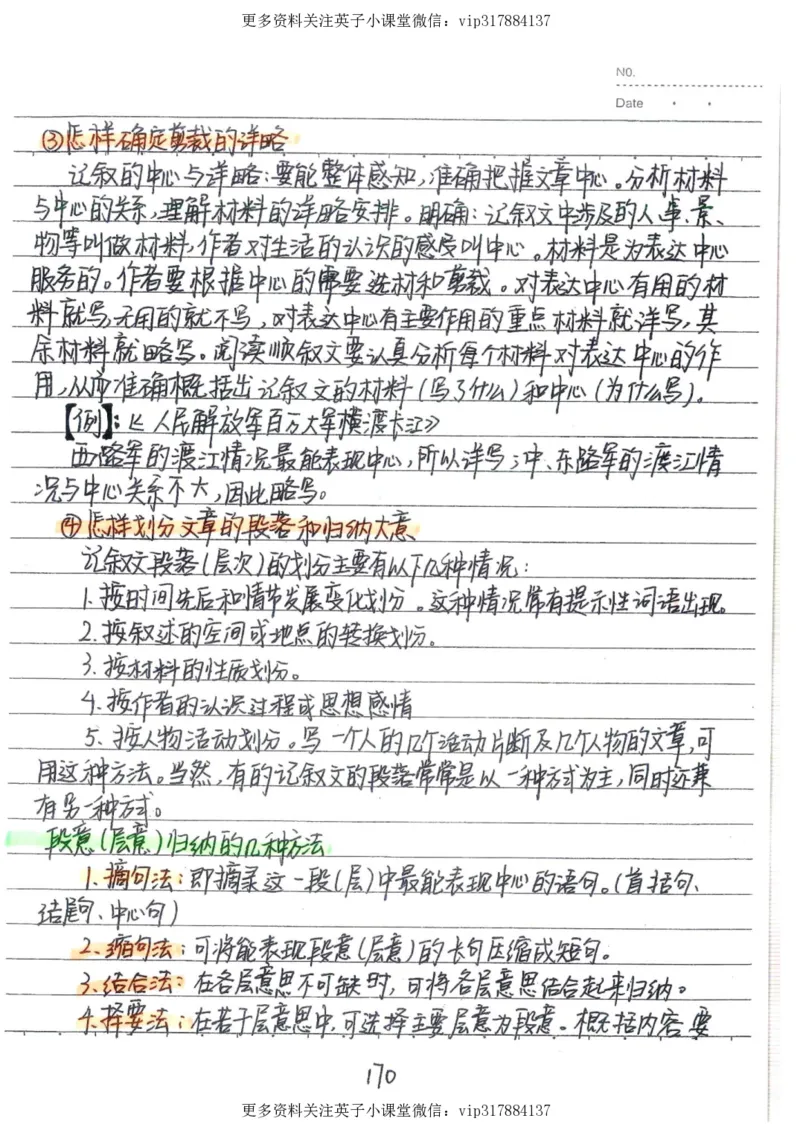 更多资料关注英子小课堂微信：vip317884137
NO.
Date
③怎样确定剪裁的详略
记叙的中心与详略:要能整体感知,准确把握文章中心。分析材料
与中心的关系,理解材料的详略安排。明确:记叙文中涉及的人、事、景、
物等叫做材料,作者对生活的认识的感受叫中心。材料是为表达中心
服务的。作者要根据中心的需要选材和剪裁。对表达中心有用的材
料就写,无用的就不写,对表达中心有主要作用的重点材料就详写,其
余材料就略写。阅读顺叙文要认真分析每个材料对表达中心的作
用,从而准确概括出记叙文的材料(写了什么)和中心(为什么写)。
【例】:《人民解放军百万大军横渡长江》
西路军的渡江情况最能表现中心,所以详写;中、东路军的渡江情
况与中心关系不大,因此略写。
④怎样划分文章的段落和归纳大意
记叙文段落(层次)的划分主要有以下几种情况:
1.按时间先后和情节发展变化划分。这种情况常有提示性词语出现。
2.按叙述的空间或地点的转换划分。
3.按材料的性质划分。
4.按作者的认识过程或思想感情
5.按人物活动划分。写一个人的几个活动片断及几个人物的文章,可
用这种方法。当然,有的记叙文的段落常常是以一种方式为主,同时还兼
有另一种方式。
段意(层意)归纳的几种方法
1.摘句法:即摘录这一段(层)中最能表现中心的语句。(首括句、
结尾句、中心句)
2.缩句法:可将能表现段意(层意)的长句压缩成短句。
3.结合法:在各层意思不可缺时,可将各层意思结合起来归纳。
4.择要法:在若干层意思中,可选择主要层意为段意。概括内容要
170
更多资料关注英子小课堂微信：vip317884137